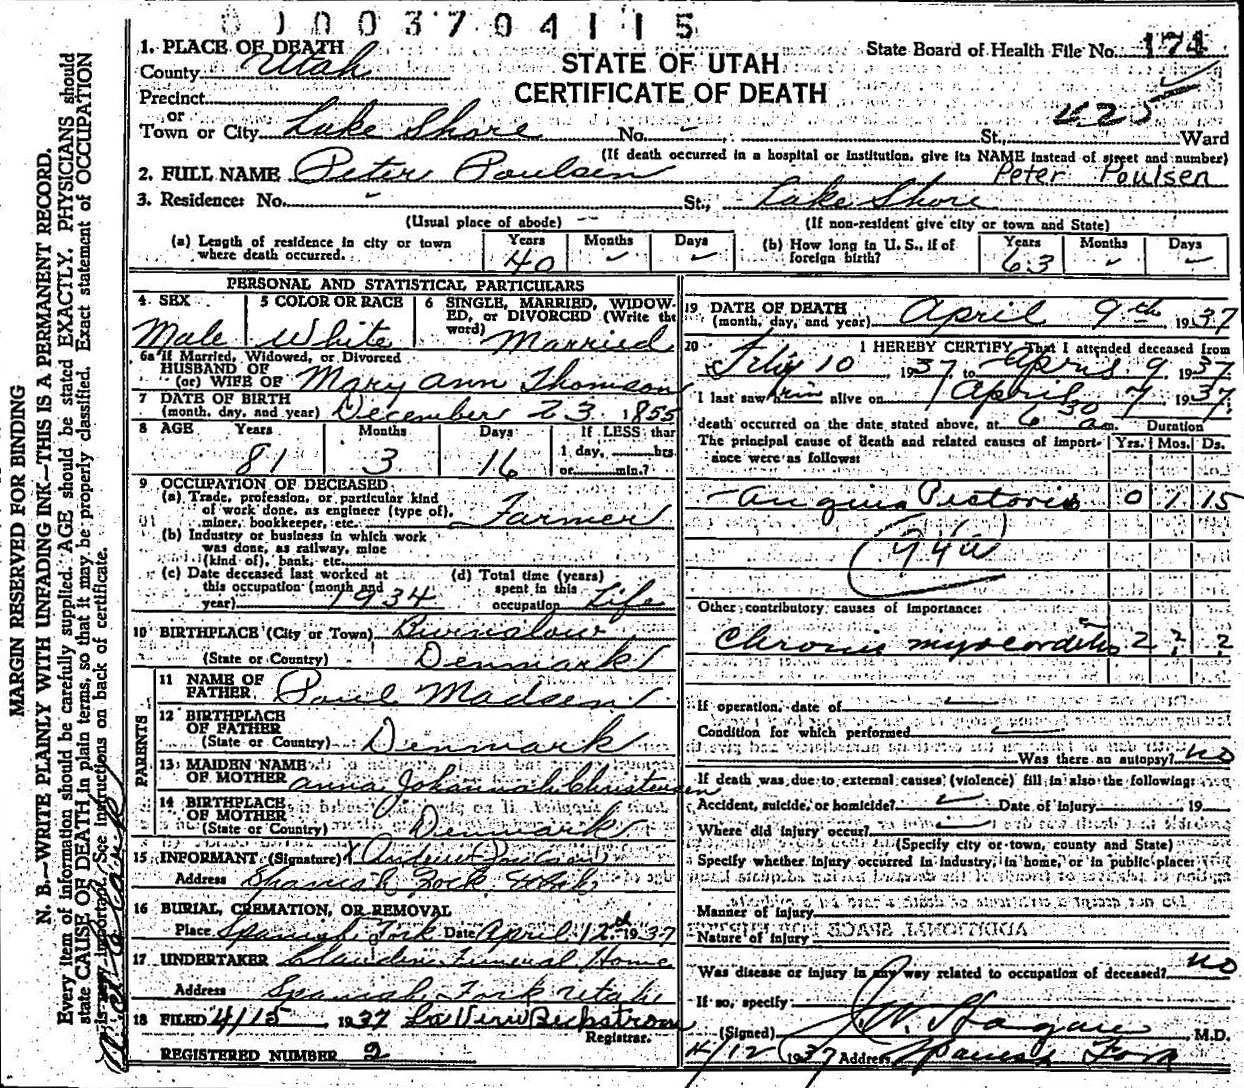 0 1 0 0 3 7 0 4 1 1 5
1. PLACE OF DEATH
County Utah
STATE OF UTAH
CERTIFICATE OF DEATH
State Board of Health File No. 174
425
Precinct
or
Town or City Lake Shore No. - St., Ward
(If death occurred in a hospital or institution, give its NAME instead of street and number)
2. FULL NAME Peter Poulsen Peter Poulsen
3. Residence: No. - St., Lake Shore
(Usual place of abode) (If non-resident give city or town and State)
(a) Length of residence in city or town where death occurred. Years 40 Months - Days -
(b) How long in U. S., if of foreign birth? Years 63 Months - Days -
PERSONAL AND STATISTICAL PARTICULARS
4 SEX Male
5 COLOR OR RACE White
6 SINGLE, MARRIED, WIDOWED, or DIVORCED (Write the word) Married
6a If Married, Widowed, or Divorced
HUSBAND OF
(or) WIFE OF Mary Ann Thomson
7 DATE OF BIRTH
(month, day, and year) December 23 1855
8 AGE Years 81 Months 3 Days 16 If LESS than 1 day, hrs. or min.?
9 OCCUPATION OF DECEASED
(a) Trade, profession, or particular kind
of work done, as engineer (type of),
miner, bookkeeper, etc. Farmer
(b) Industry or business in which work
was done, as railway, mine
(kind of), bank, etc.
(c) Date deceased last worked at
this occupation (month and
year) 1934
(d) Total time (years)
spent in this
occupation Life
10 BIRTHPLACE (City or Town)
(State or Country) Denmark
PARENTS
11 NAME OF
FATHER Poul Madsen
12 BIRTHPLACE
OF FATHER
(State or Country) Denmark
13 MAIDEN NAME
OF MOTHER Anna Johannah Christensen
14 BIRTHPLACE
OF MOTHER
(State or Country) Denmark
15 INFORMANT (Signature) X Andrew Poulsen
Address Spanish Fork Utah
16 BURIAL, CREMATION, OR REMOVAL
Place Spanish Fork Date April 12th 1937
17 UNDERTAKER Claudin Funeral Home
Address Spanish Fork Utah
18 FILED 4/15 1937 La Vern Beckstrom
Registrar.
REGISTERED NUMBER 2
19 DATE OF DEATH
(month, day, and year) April 9th 1937
20 I HEREBY CERTIFY, That I attended deceased from
10 1937 to April 9 1937
I last saw him alive on April 7 1937
death occurred on the date stated above, at 6 30 a m. Duration
The principal cause of death and related causes of importance were as follows: Yrs. Mos. Ds.
Angina Pectoris 0 1 15
94a
Other contributory causes of importance:
Chronic myocarditis 2 ? ?
If operation, date of
Condition for which performed
Was there an autopsy? no
If death was due to external causes (violence) fill in also the following:
Accident, suicide, or homicide? Date of injury 19
Where did injury occur?
(Specify city or town, county and State)
Specify whether injury occurred in industry, in home, or in public place:
Manner of injury
Nature of injury
Was disease or injury in any way related to occupation of deceased? no
If so, specify
(Signed) J. W. Hagan M.D.
4/12 1937 Address Spanish Fork
MARGIN RESERVED FOR BINDING
N. B.—WRITE PLAINLY WITH UNFADING INK—THIS IS A PERMANENT RECORD.
Every item of information should be carefully supplied. AGE should be stated EXACTLY. PHYSICIANS should
state CAUSE OF DEATH in plain terms, so that it may be properly classified. Exact statement of OCCUPATION
is very important. See instructions on back of certificate.